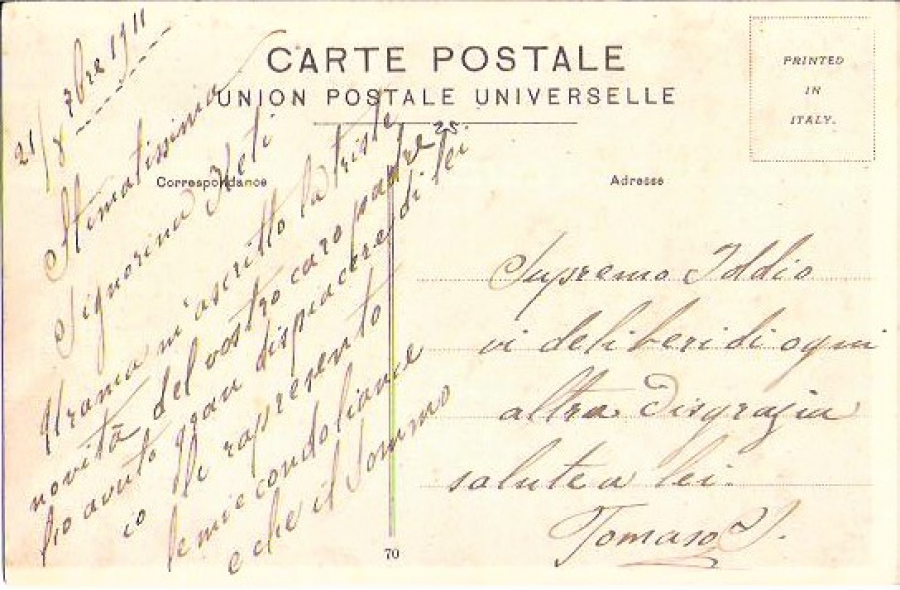 CARTE POSTALE
UNION POSTALE UNIVERSELLE
PRINTED
IN
ITALY.
Correspondance
Adresse
21/8 7bre 1911
Stimatissima
Signorina Keti
m'a scritto la triste
novità del vostro caro padre
ho avuto gran dispiacere di lei
io le rapresento
le mie condolianze
e che il Sommo
Supremo Iddio
vi deliberi di ogni
altra disgrazia
salute a lei.
Tomaso
70